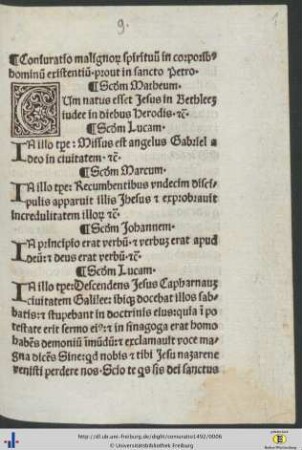 9.
1
¶Coniuratio malignoꝝ spirituũ in corporibꝰ
dominũ existentiũ·prout in sancto Petro·
¶Scďm Matheum·
CUm natus esset Jesus in Bethleeꝫ
iudee in diebus Herodis·⁊c̃·
¶Scďm Lucam·
IN illo tp̃e: Missus est angelus Gabriel a
deo in ciuitatem·⁊c̃·
¶Scďm Marcum·
IN illo tp̃e: Recumbentibus vndecim disci⸗
pulis apparuit illis Jhesus ⁊ exprobrauit
incredulitatem illoꝝ ⁊c̃
¶Scďm Johannem·
IN principio erat verbũ·⁊ verbuꝫ erat apud
deũ:⁊ deus erat verbũ·⁊c̃·
¶Scďm Lucam·
IN illo tp̃e: Descendens Jesus Capharnauꝫ
ciuitatem Galilee: ibiqꝫ docebat illos sab⸗
batis:⁊ stupebant in doctrinis eius:quia ĩ po
testate erit sermo eiꝰ:⁊ in sinagoga erat homo
habẽs demoniũ ĩmũdũ:⁊ exclamauit voce ma⸗
gna dicẽs Sine:qd nobis ⁊ tibi Jesu nazarene
venisti perdere nos·Scio te qs sis dei sanctus
http://dl.ub.uni-freiburg.de/diglit/coniuratio1492/0006
© Universitätsbibliothek Freiburg